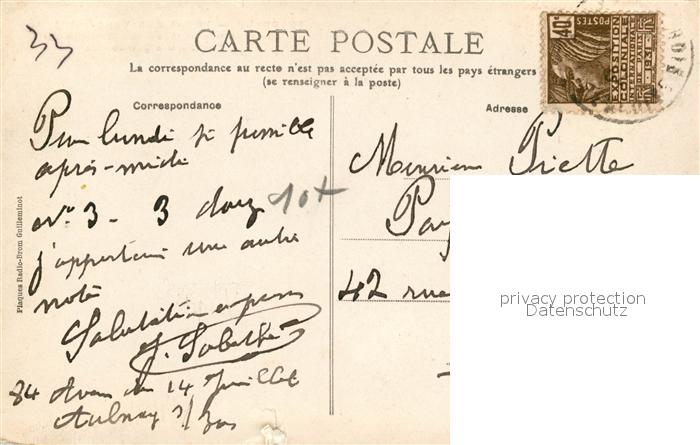 33
CARTE POSTALE
La correspondance au recto n'est pas acceptée par tous les pays étrangers
(se renseigner à la poste)
Correspondance
Adresse
40c
POSTES
EXPOSITION
COLONIALE
INTERNATIONALE
DE PARIS
1931
Pour lundi si possible
après-midi
N° 3 - 3 douz
j'apporterai une autre
note
Salutations
J. Sabathé
84 Avenue du 14 Juillet
Aulnay s/ Bois
Monsieur Piette
42 rue
Plaques Radio-Brom Guilleminot
privacy protection
Datenschutz